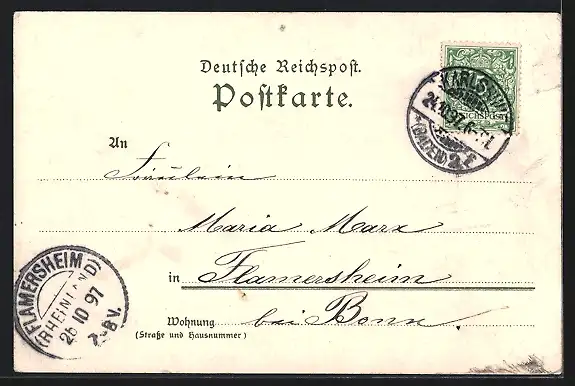 Deutsche Reichspost.
Postkarte.
KARLSRUHE
24.10.97.
(BADEN) 2.
Reichspost
An
Fräulein
Maria Marx
in Flamersheim
Wohnung bei Bonn
(Straße und Hausnummer)
FLAMERSHEIM
(RHEINLAND)
26 10 97
7-8 V.